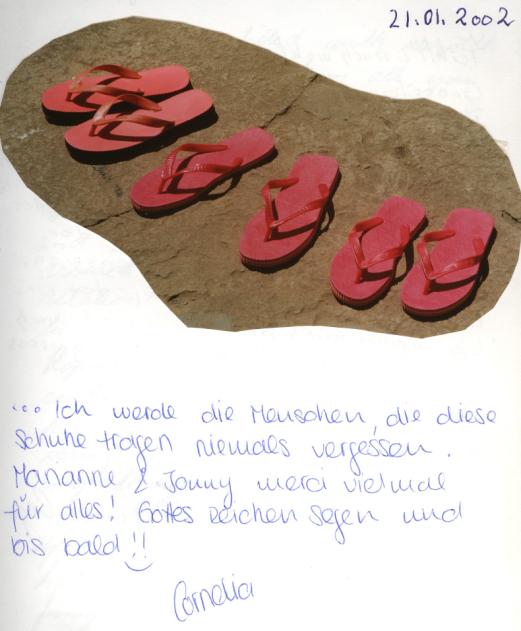 21.01.2002
... Ich werde die Menschen, die diese
Schuhe tragen niemals vergessen.
Marianne & Jonny merci vielmal
für alles! Gottes reichen Segen und
bis bald!!
Cornelia